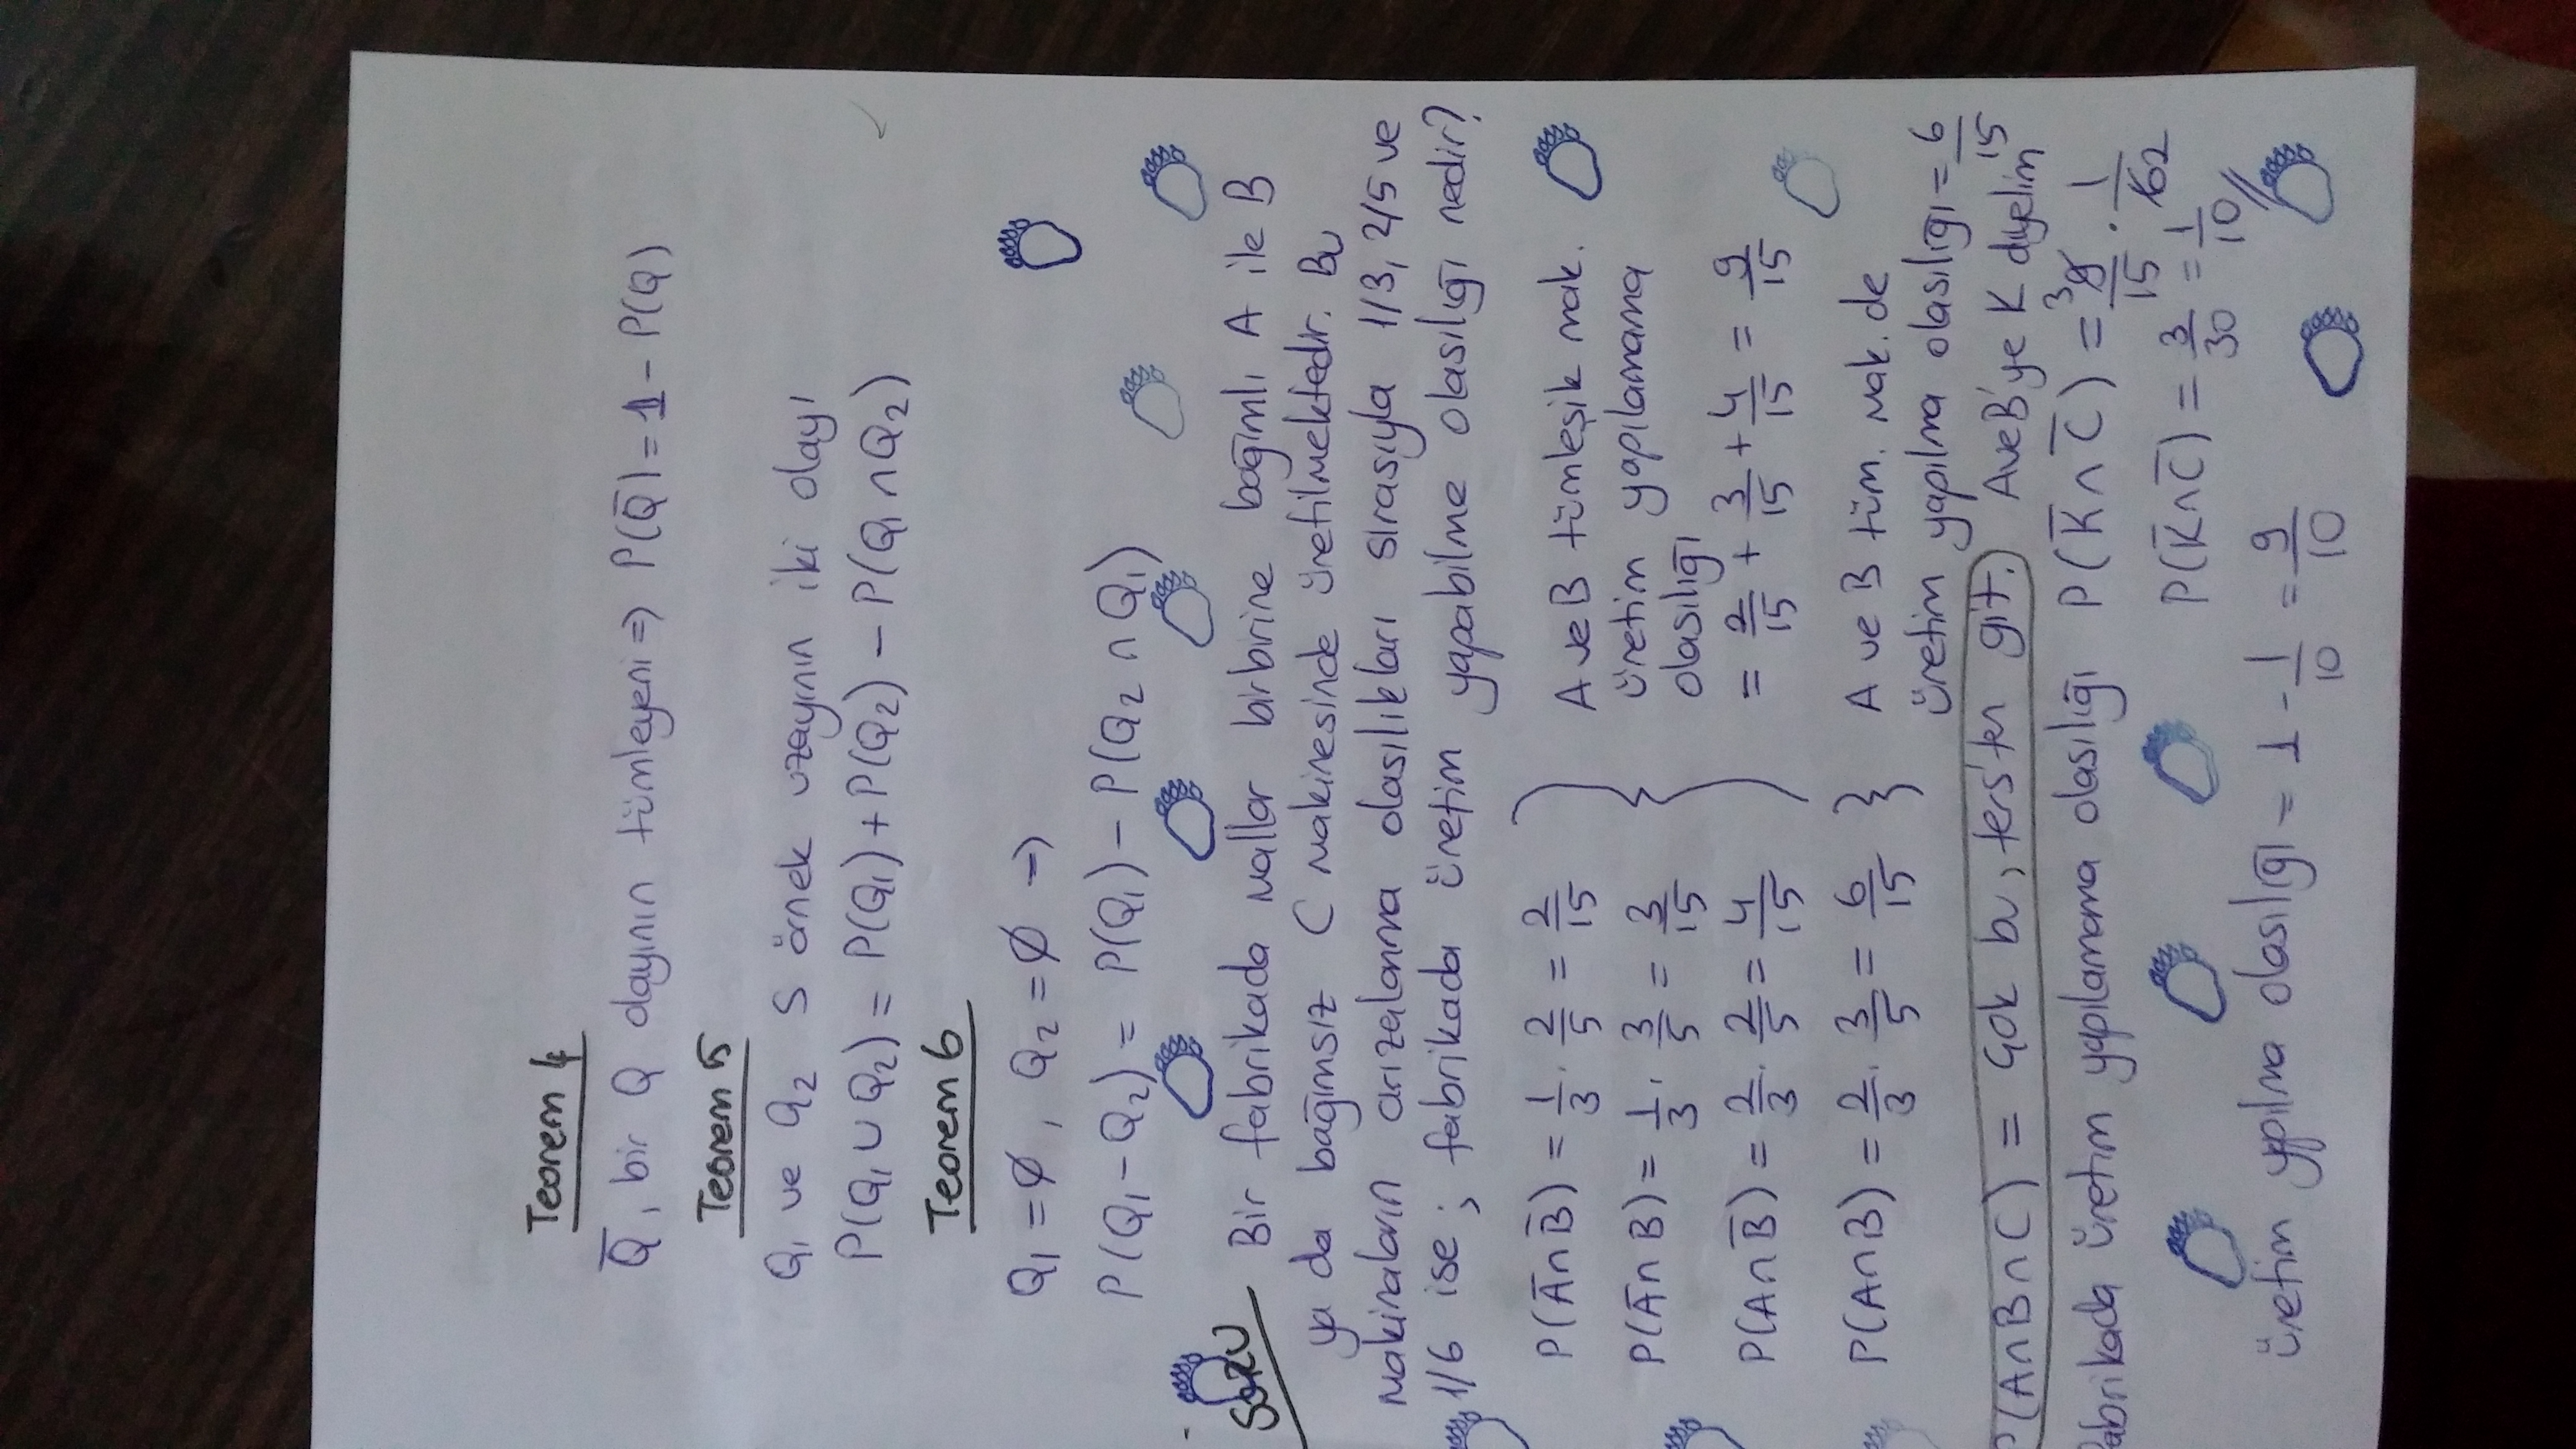 Teorem 4
Q̅, bir Q olayının tümleyeni => P(Q̅) = 1 - P(Q)
Teorem 5
Q₁ ve Q₂ S örnek uzayının iki olayı
P(Q₁ ∪ Q₂) = P(Q₁) + P(Q₂) - P(Q₁ ∩ Q₂)
Teorem 6
Q₁ = Ø, Q₂ = Ø →
P(Q₁ - Q₂) = P(Q₁) - P(Q₂ ∩ Q₁)
SORU Bir fabrikada mallar birbirine bağımlı A ile B
ya da bağımsız C makinesinde üretilmektedir. Bu
makinaların arızalanma olasılıkları sırasıyla 1/3, 2/5 ve
1/6 ise; fabrikada üretim yapabilme olasılığı nedir?
P(A̅ ∩ B̅) = 1/3 . 2/5 = 2/15
P(A̅ ∩ B) = 1/3 . 3/5 = 3/15
P(A ∩ B̅) = 2/3 . 2/5 = 4/15
} A ve B tümleşik mak.
üretim yapılamama
olasılığı
= 2/15 + 3/15 + 4/15 = 9/15
P(A ∩ B) = 2/3 . 3/5 = 6/15 } A ve B tüm. mak. de
üretim yapılma olasılığı = 6/15
P(A ∩ B ∩ C) = Çok bu, ters'ten git.
A ve B'ye K diyelim
Fabrikada üretim yapılamama olasılığı P(K̅ ∩ C̅) = 9/15 . 1/6 3 2
P(K̅ ∩ C̅) = 3/30 = 1/10 //
üretim yapılma olasılığı = 1 - 1/10 = 9/10